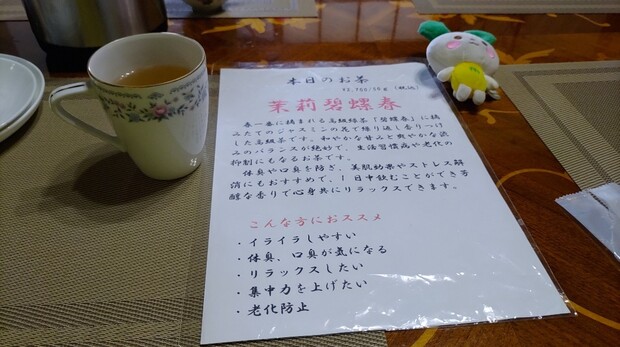 本日のお茶
¥2,700/50g (税込)
茉莉碧螺春
春一番に摘まれる高級緑茶「碧螺春」に摘
みたてのジャスミンの花で繰り返し香りつけ
した高級茶です。和やかな甘みと爽やかな渋
みのバランスが絶妙で、生活習慣病や老化の
抑制にもなるお茶です。
体臭や口臭を防ぎ、美肌効果やストレス解
消にもおすすめで、1日中飲むことができ芳
醇な香りで心身共にリラックスできます。
こんな方におススメ
・イライラしやすい
・体臭、口臭が気になる
・リラックスしたい
・集中力を上げたい
・老化防止